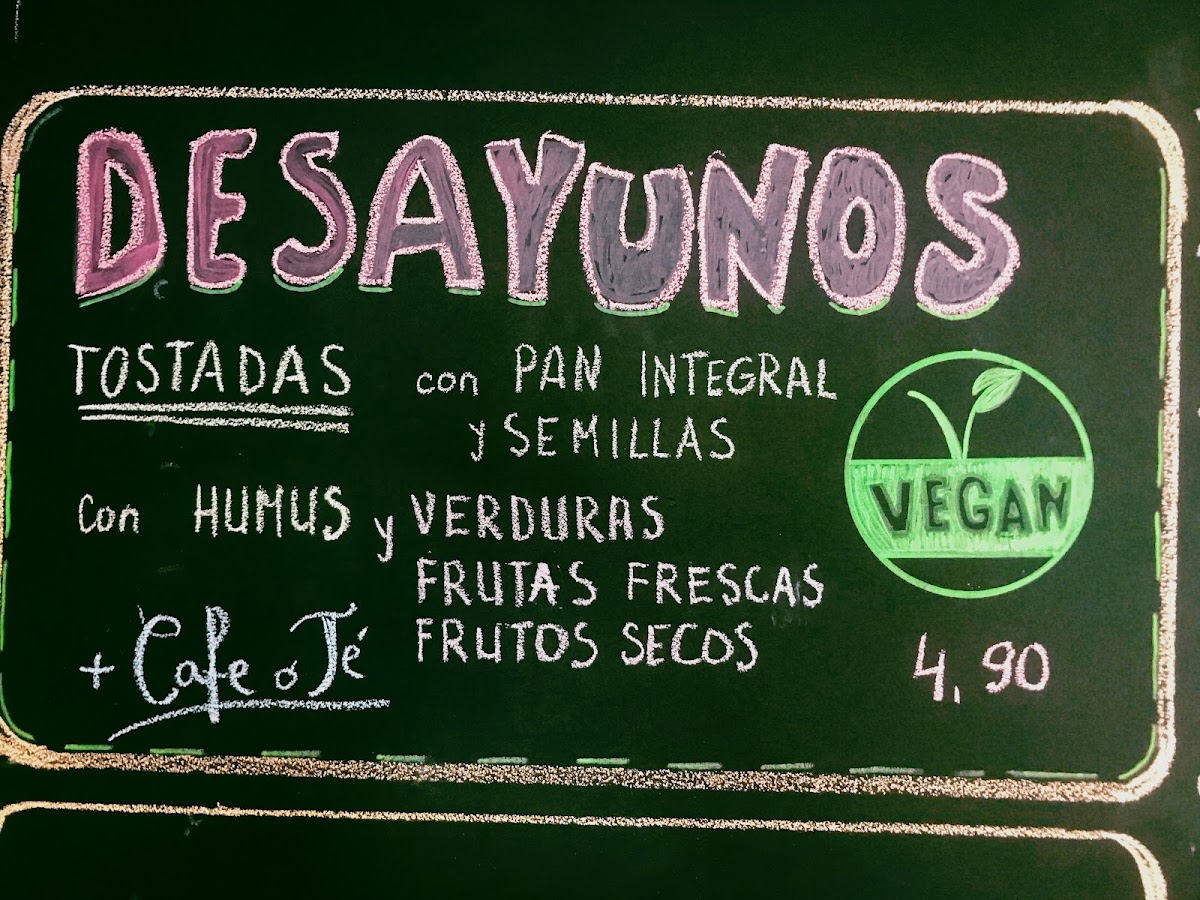 DESAYUNOS
TOSTADAS con PAN INTEGRAL
y SEMILLAS
VEGAN
Con HUMUS y VERDURAS
FRUTAS FRESCAS
FRUTOS SECOS
+ Cafe ó Té
4,90